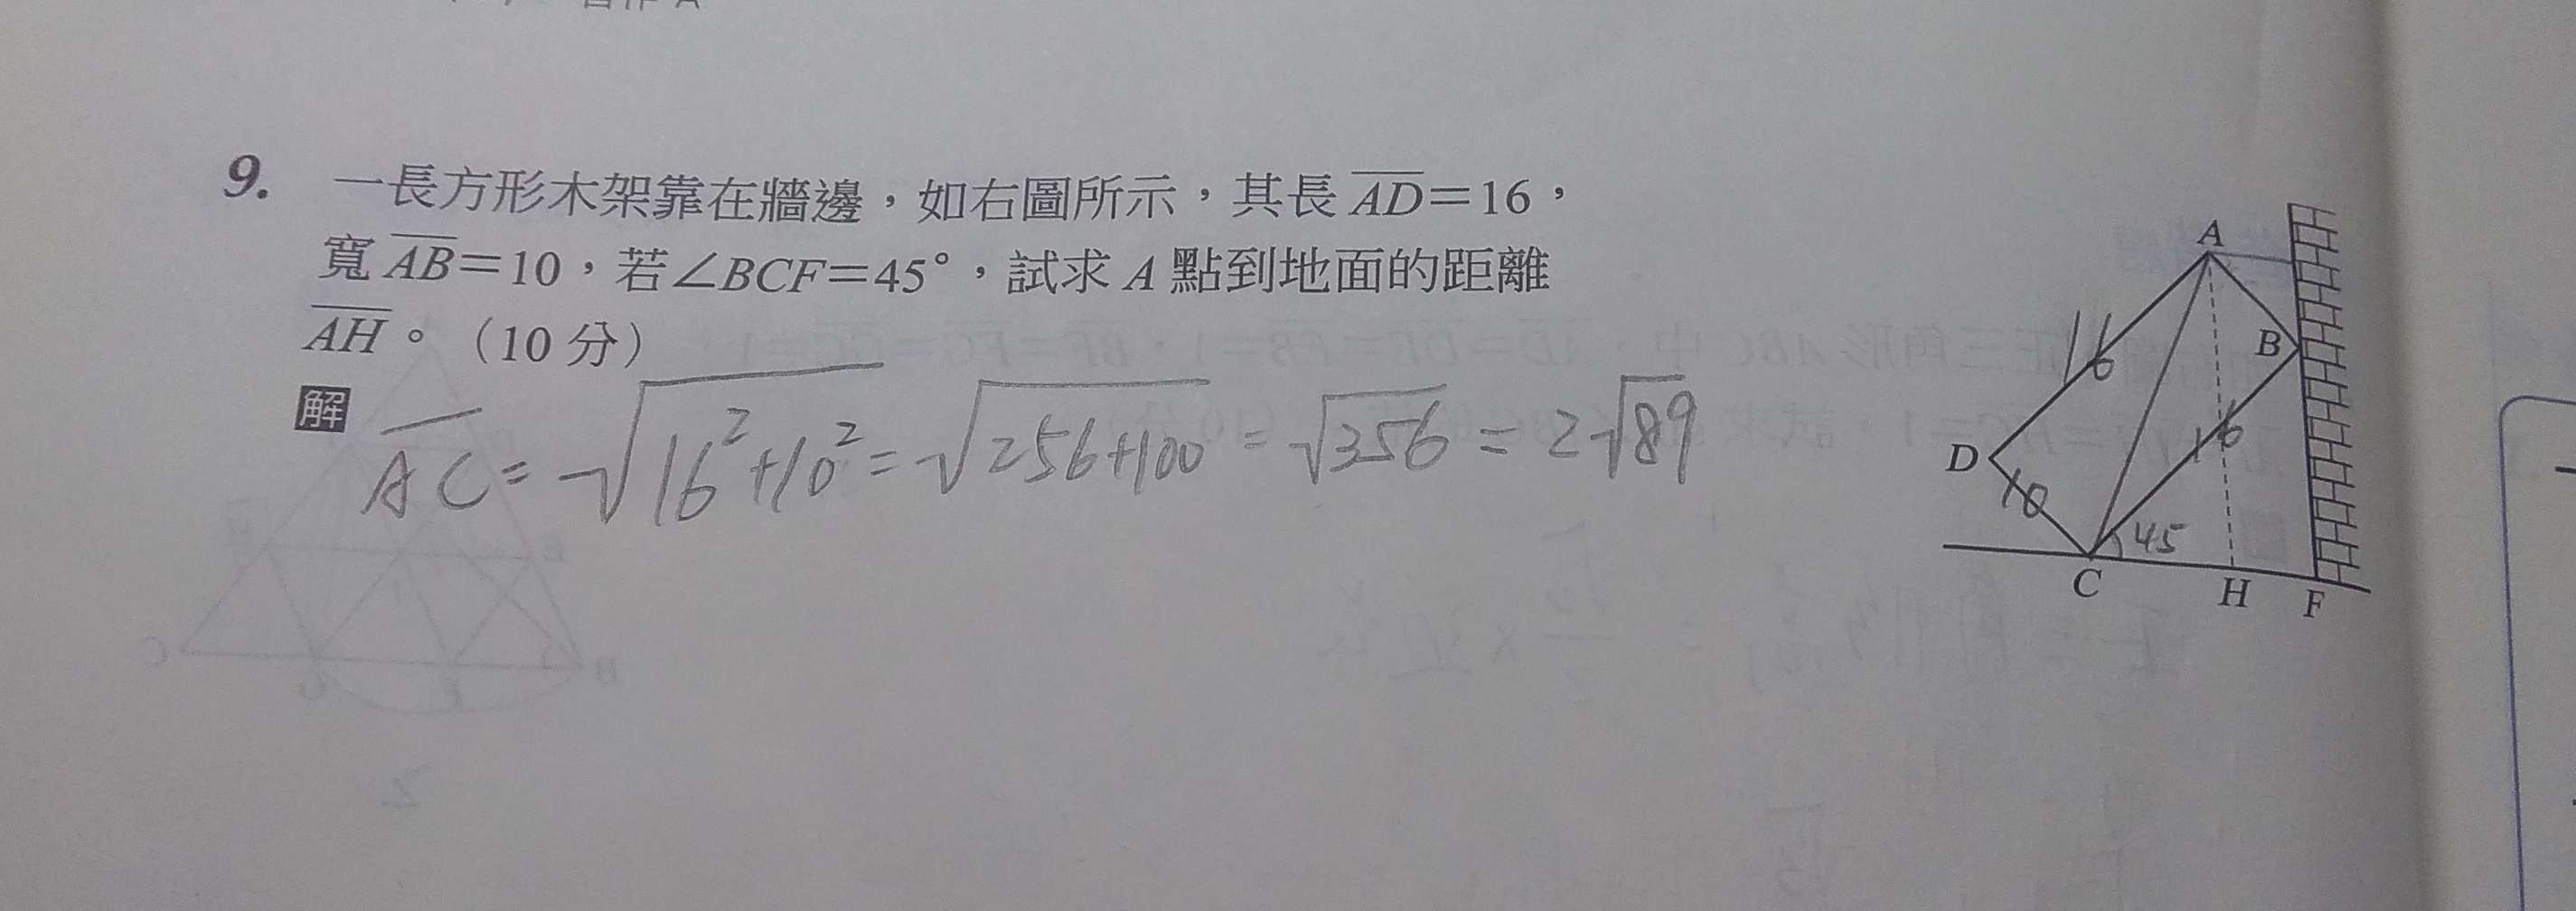 9. 一長方形木架靠在牆邊，如右圖所示，其長 AD＝16，
寬 AB＝10，若∠BCF＝45°，試求 A 點到地面的距離
AH。（10 分）
解
AC = √16²+10² = √256+100 = √356 = 2√89
A
B
16
16
D
10
45
C
H
F